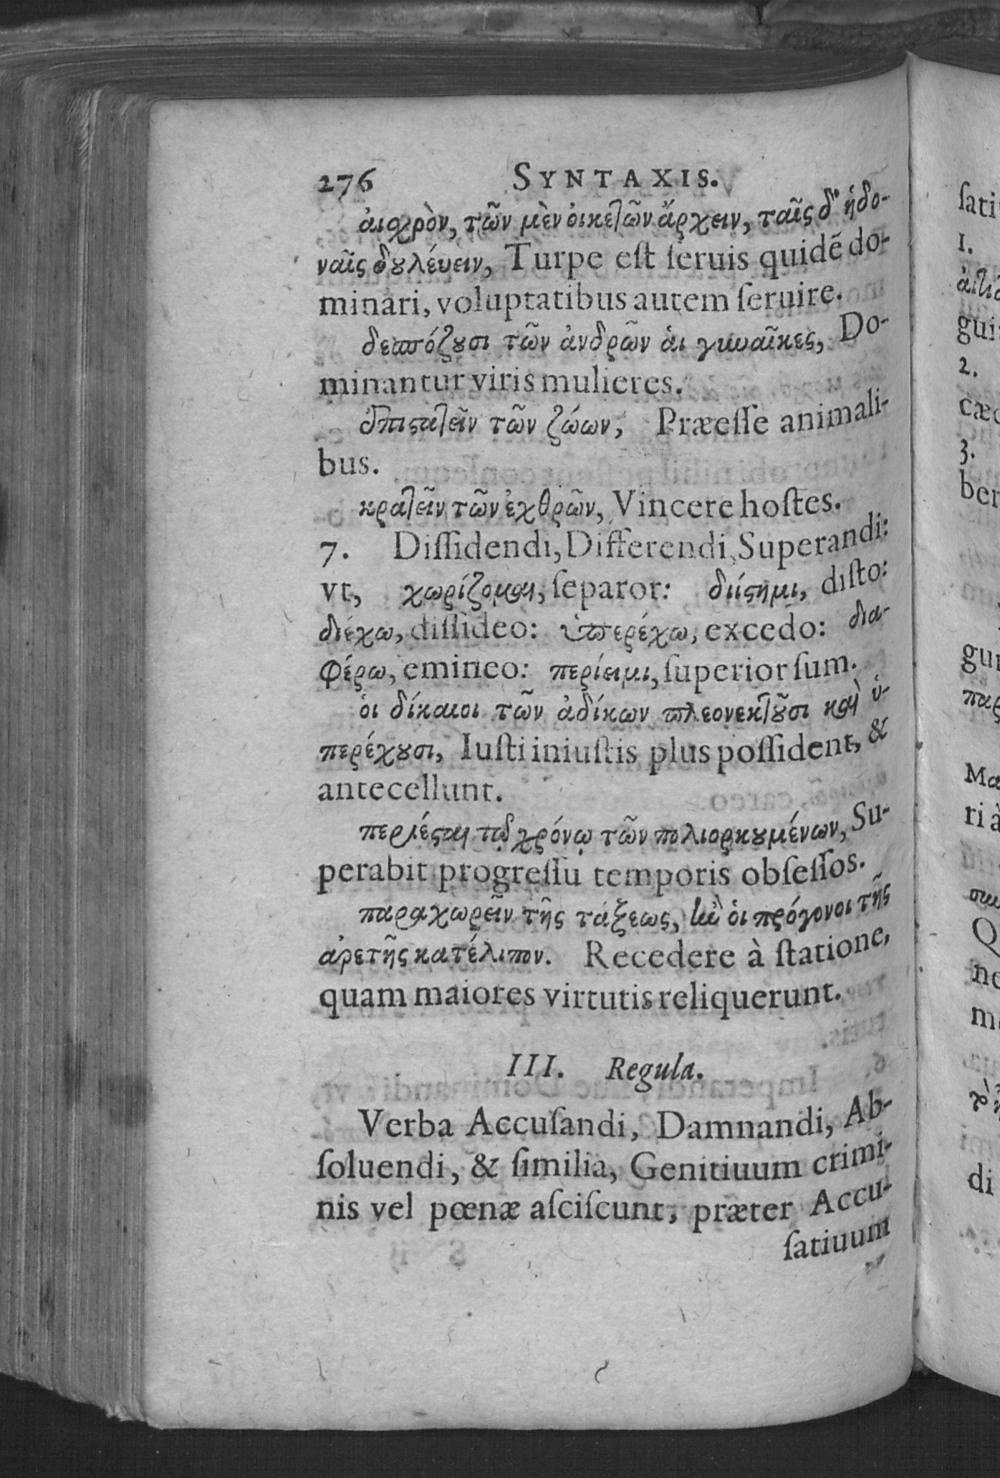 276 SYNTAXIS.
αἰσχρὸν, τῶν μὲν οἰκετῶν ἄρχειν, ταῖς δ' ἡδο-
ναῖς δουλέυειν, Turpe eſt ſeruis quidẽ do-
minari, voluptatibus autem ſeruire.
δεσπόζουσι τῶν ἀνδρῶν ἁι γυναῖκες, Do-
minantur viris mulieres.
ἐπιστατεῖν τῶν ζώων, Præeſſe animali-
bus.
κρατεῖν τῶν ἐχθρῶν, Vincere hoſtes.
7. Diſſidendi, Differendi, Superandi:
vt, χωρίζομαι, ſeparor: διίστημι, diſto:
διέχω, diſſideo: ὑπερέχω, excedo: δια-
φέρω, emineo: περίειμι, ſuperior ſum.
ὁι δίκαιοι τῶν ἀδίκων πλεονεκτοῦσι καὶ ὑ-
περέχουσι, Iuſti iniuſtis plus poſſident, &
antecellunt.
περιέσται τῷ χρόνῳ τῶν πολιορκουμένων, Su-
perabit progreſſu temporis obſeſſos.
παραχωρεῖν τῆς τάξεως, ἣν ὁι πρόγονοι τῆς
ἀρετῆς κατέλιπον. Recedere à ſtatione,
quam maiores virtutis reliquerunt.
III. Regula.
Verba Accuſandi, Damnandi, Ab-
ſoluendi, & ſimilia, Genitiuum crimi-
nis vel pœnæ aſciſcunt, præter Accu-
ſatiuum
ſati
1.
gui
2.
cæc
3.
ber
gu
παρ
Ma
ri à
Q
ne
m
di